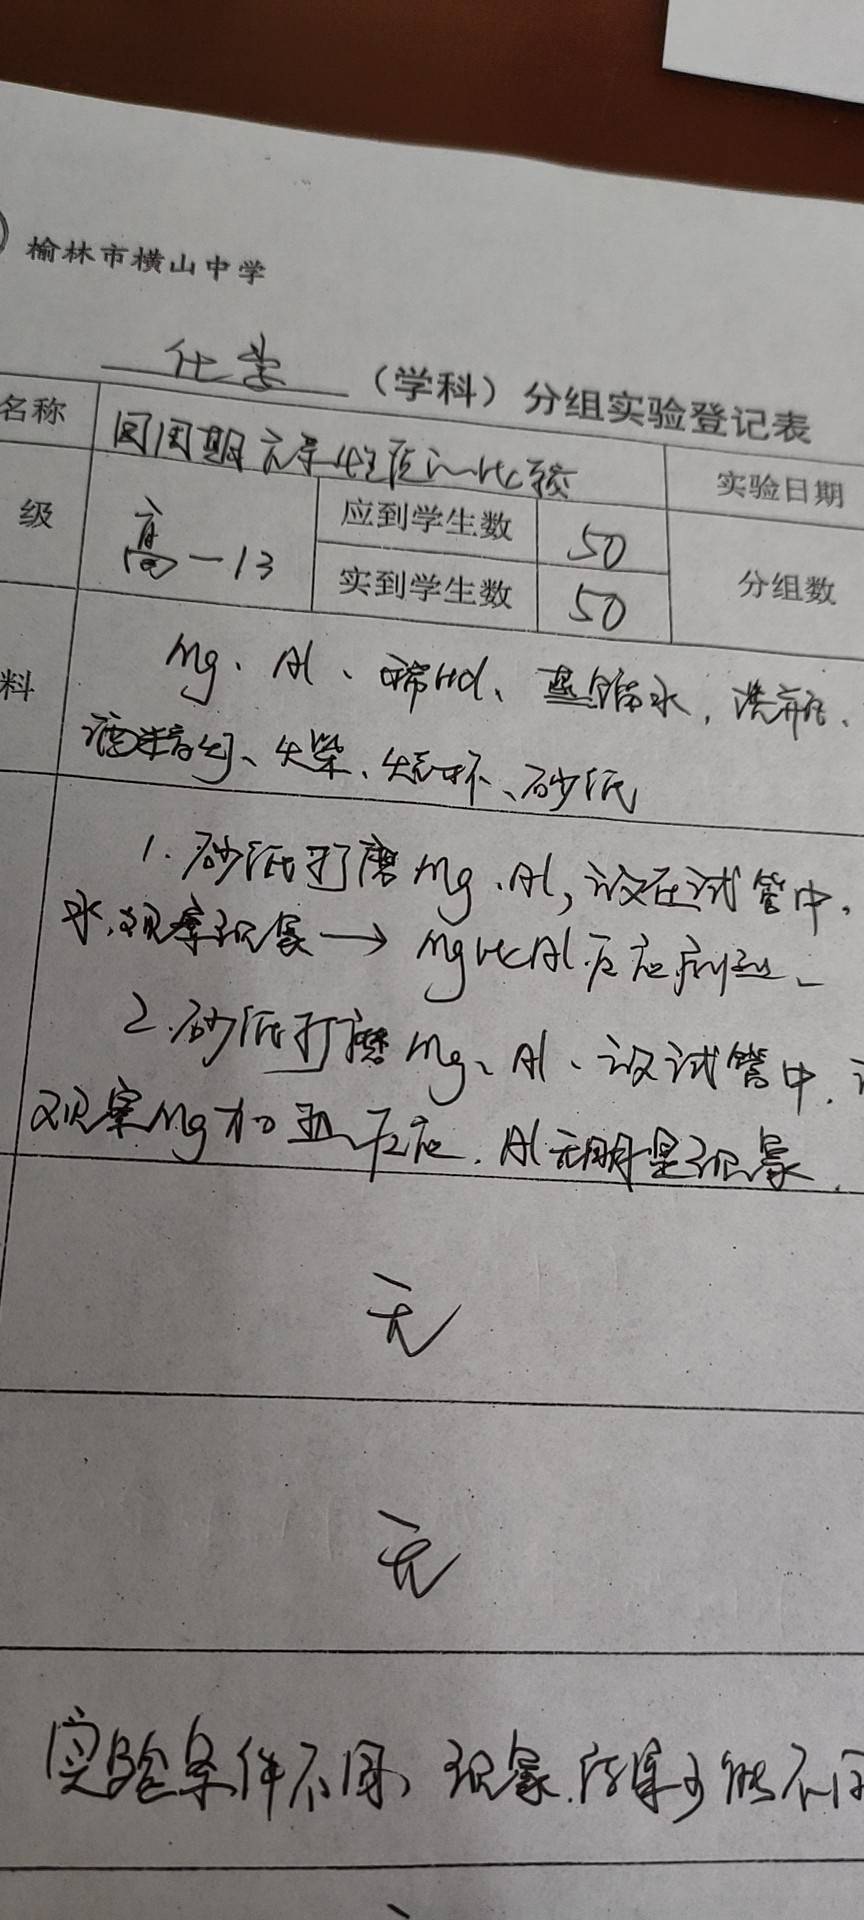 榆林市横山中学
化学（学科）分组实验登记表
名称 同周期元素性质的比较 实验日期
级 高一13 应到学生数 50 分组数
实到学生数 50
料 Mg、Al、稀HCl、蒸馏水，洗瓶、
酒精灯、火柴、烧杯、砂纸
1.砂纸打磨Mg、Al，放在试管中，
水，观察现象→Mg比Al反应剧烈、
2.砂纸打磨Mg、Al、放试管中，
观察Mg加热反应．Al无明显现象．
无
无
实验条件不同，现象．结果可能不同